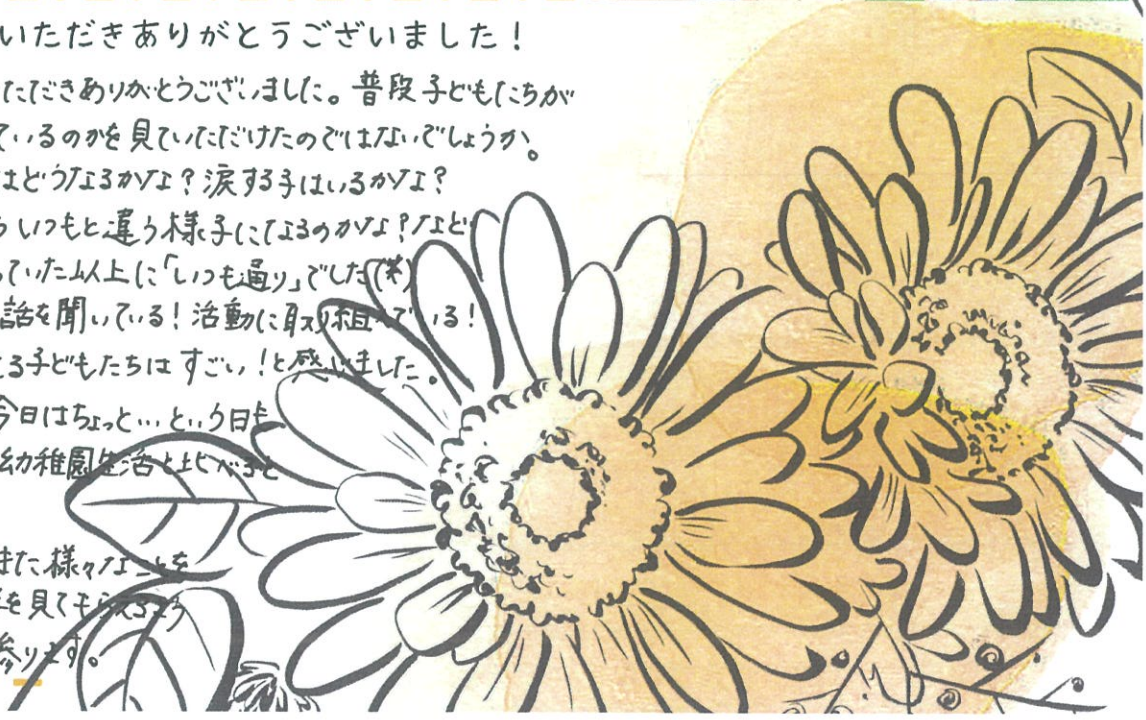 いただきありがとうございました！
ただきありがとうございました。普段子どもたちが
ているのかを見ていただけたのではないでしょうか。
はどうなるかな？涙する子はいるかな？
いつもと違う様子になるのかな？など
っていた以上に「いつも通り」でした(*)
話を聞いている！活動に取り組んでいる！
る子どもたちはすごい！と感じました。
今日はちょっと…という日も
幼稚園生活と比べると
また様々なことを
を見てもらえるよう
参ります。